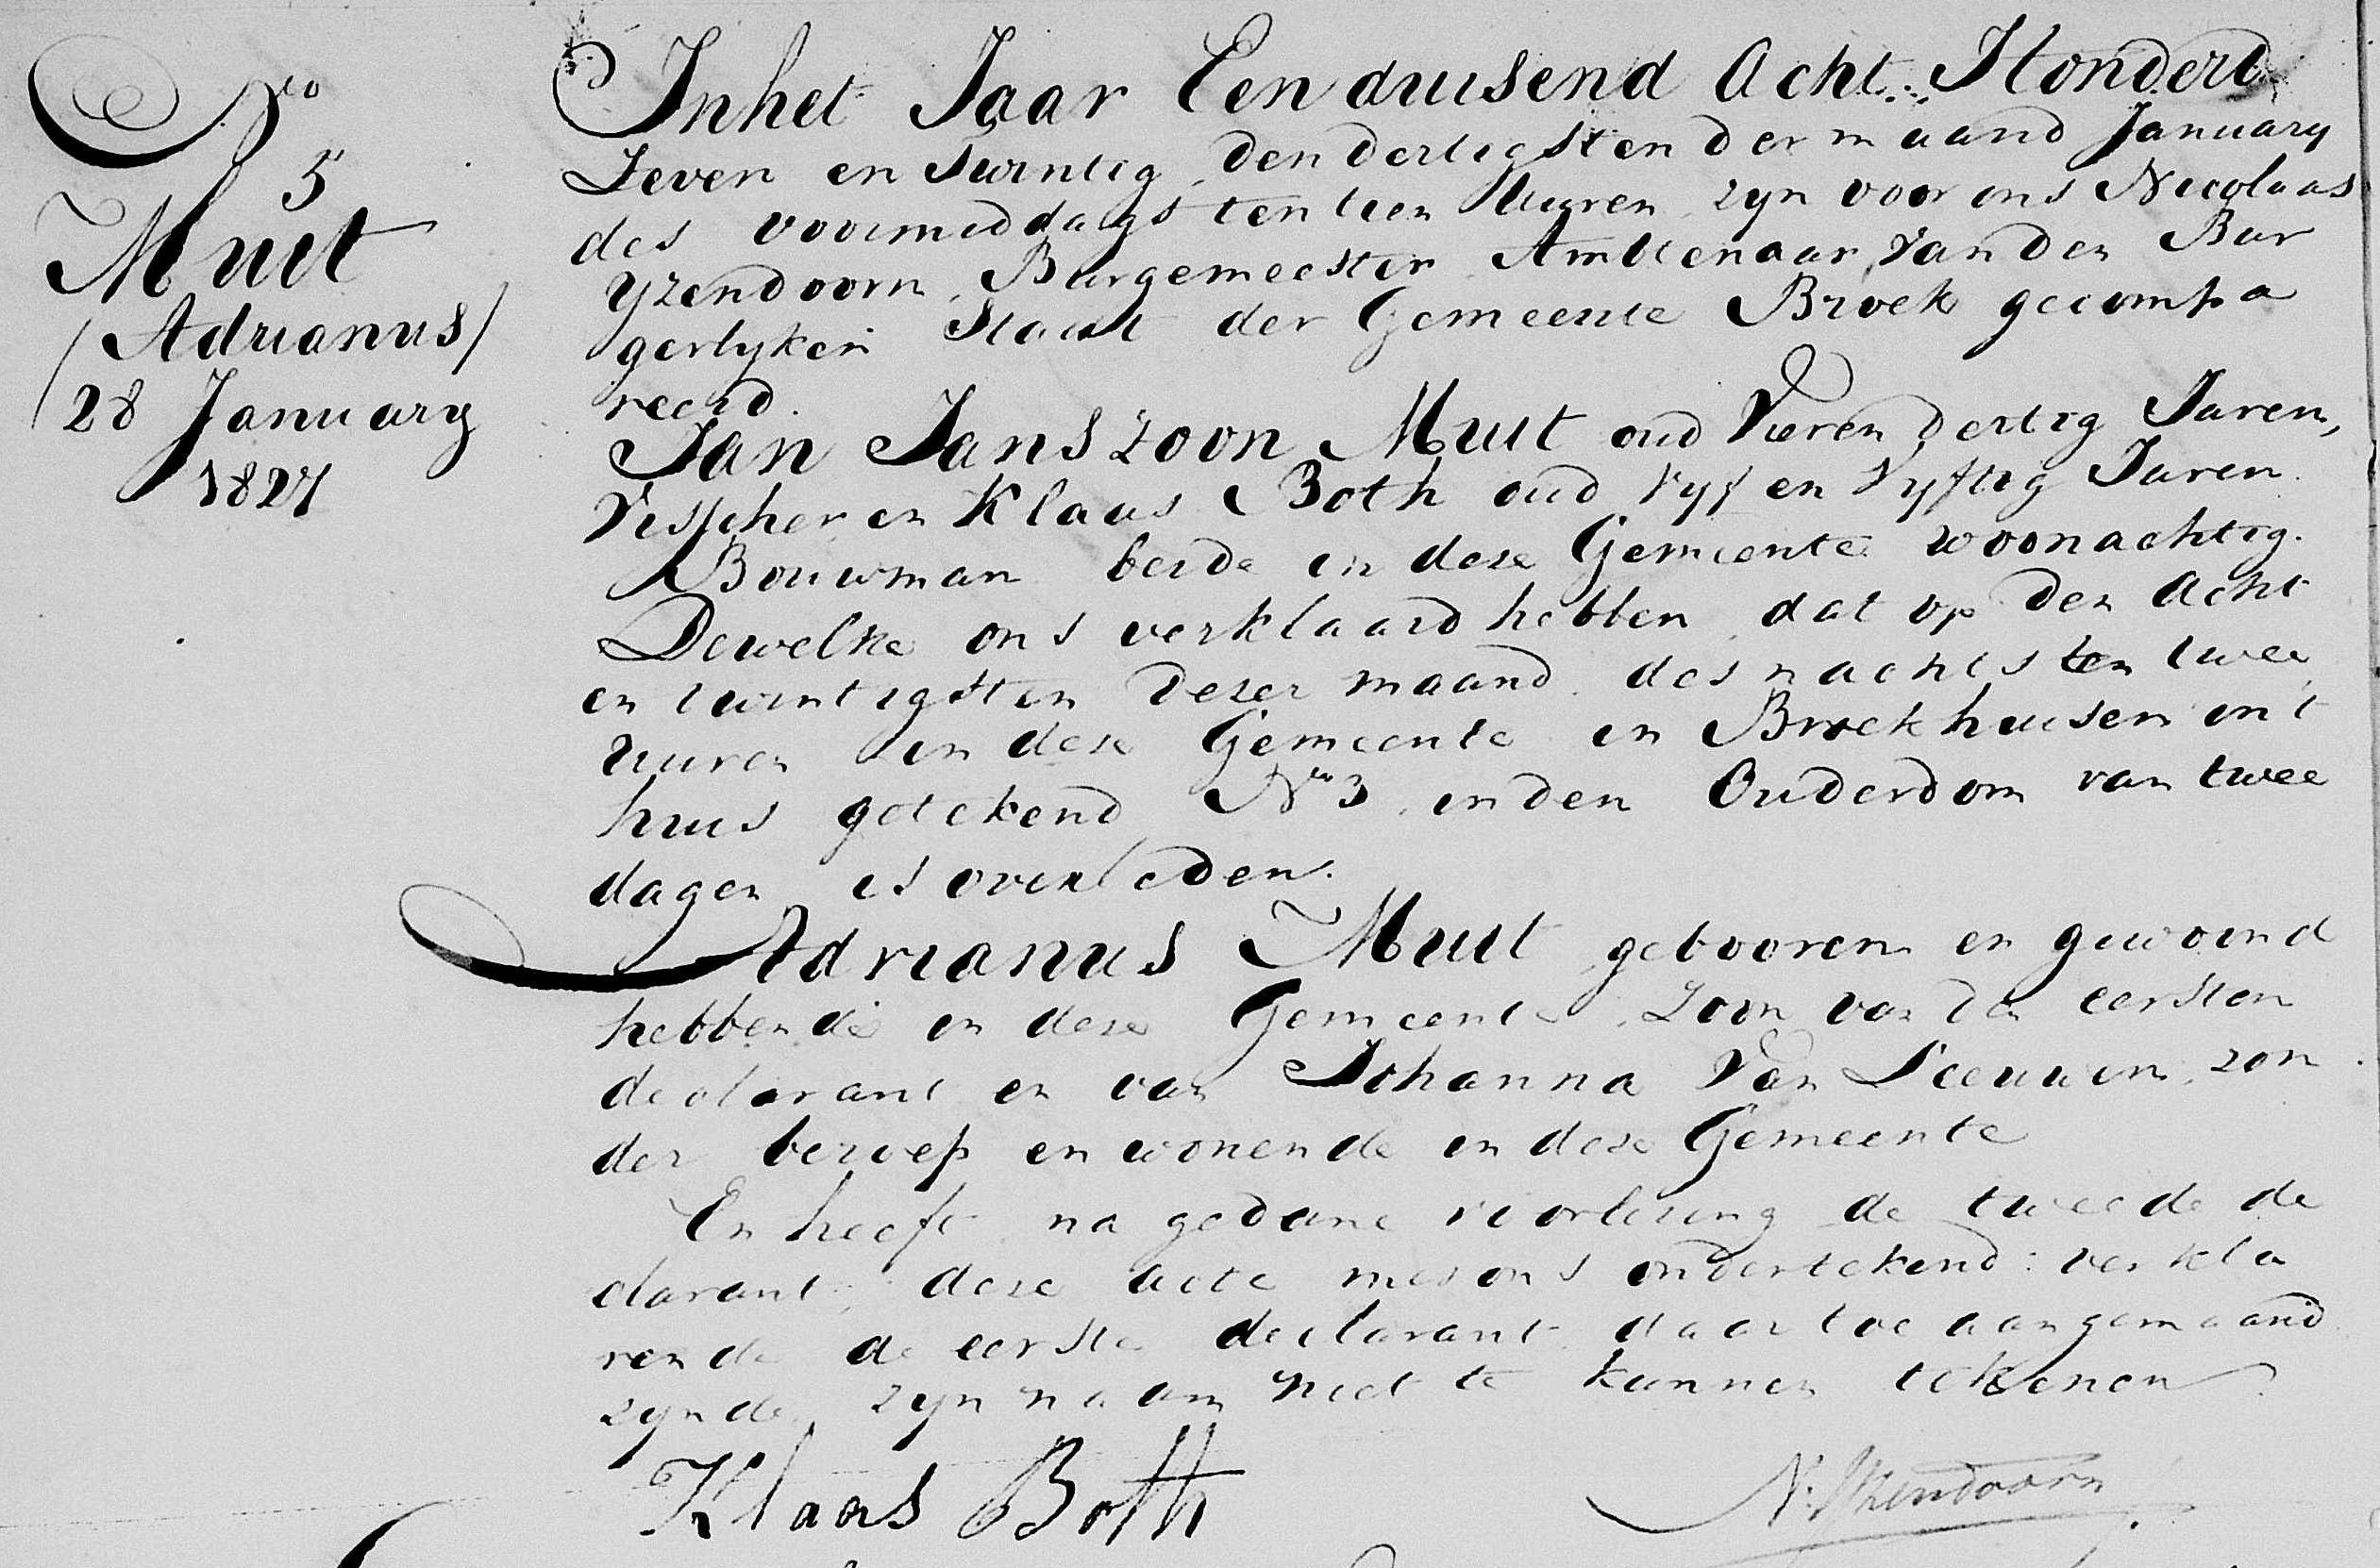 No
5
Muit
(Adrianus)
28 January
1827
In het Jaar Een duisend Acht Hondert
Zeven en twintig, den dertigsten der maand January
des voormiddags ten tien Uuren, zyn voor ons Nicolaas
Yzendoorn, Burgemeester Ambtenaar, van den Bur
gerlyken Staat der Gemeente Broek gecompa
reerd.
Jan Janszoon Muit oud Vieren dertig Jaren,
Visscher en Klaas Both oud Vyf en Vyftig Jaren
Bouwman beide in deze Gemeente woonachtig.
Dewelke ons verklaard hebben, dat op den Acht
en twintigsten dezer maand des nachts ten twee
uuren in deze Gemeente in Broekhuisen in t
huis getekend No 3, in den Ouderdom van twee
dagen is overleden.
Adrianus Muit gebooren en gewoond
hebbende in deze Gemeente, Zoon van den eersten
declarant en van Johanna Van Leeuwen, zon
der beroep en wonende in deze Gemeente
En heeft na gedane voorlezing de tweede de
clarant, deze acte met ons ondertekend: verkla
rende de eerste declarant daar toe aangemaand
zynde, zyn naam niet te kunnen tekenen
Klaas Both
N: Yzendoorn